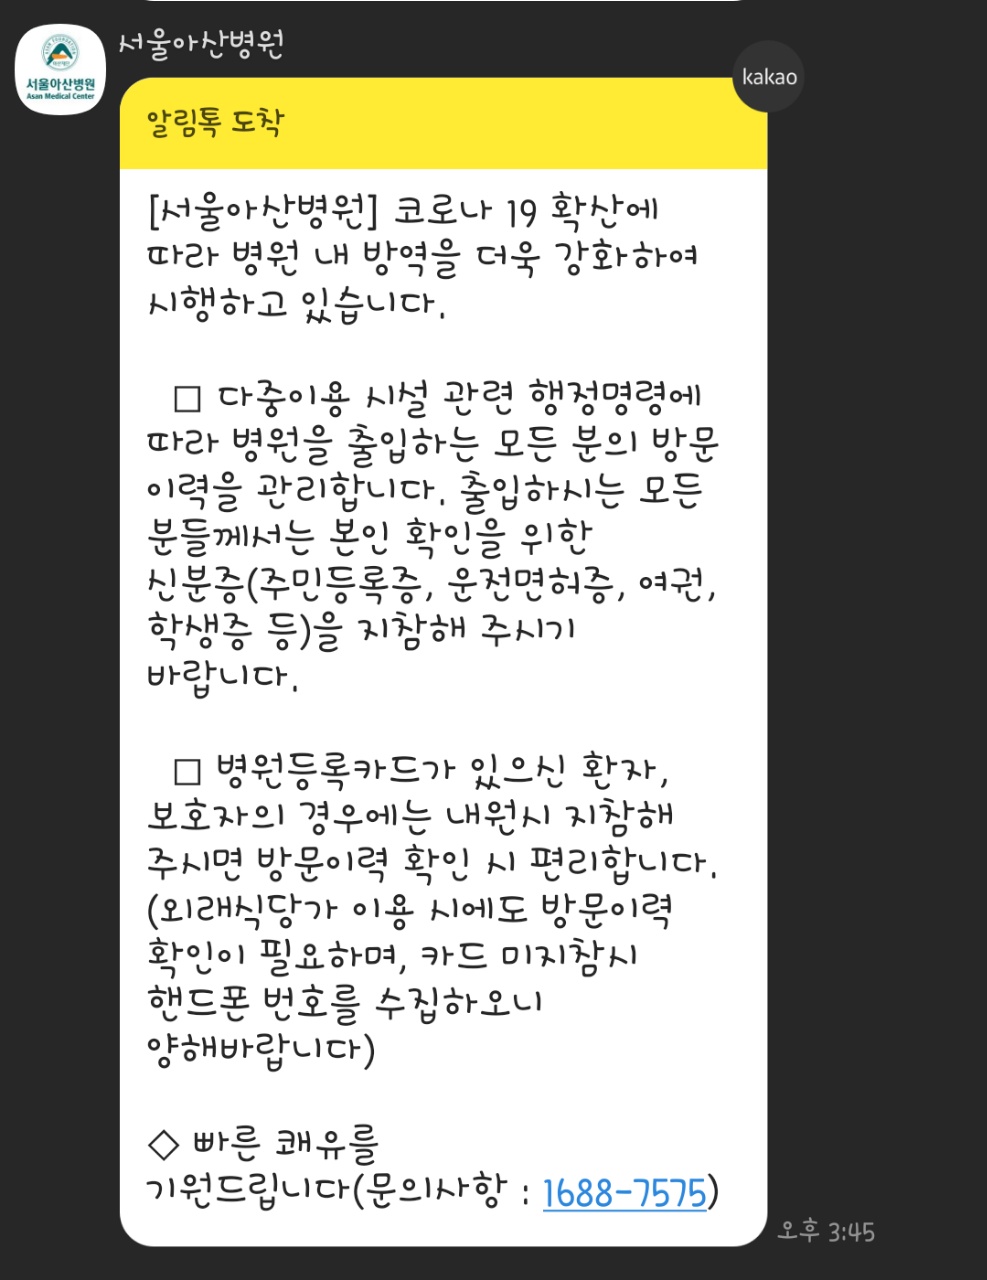 서울아산병원
서울아산병원
Asan Medical Center
kakao
알림톡 도착
[서울아산병원] 코로나 19 확산에
따라 병원 내 방역을 더욱 강화하여
시행하고 있습니다.
□ 다중이용 시설 관련 행정명령에
따라 병원을 출입하는 모든 분의 방문
이력을 관리합니다. 출입하시는 모든
분들께서는 본인 확인을 위한
신분증(주민등록증, 운전면허증, 여권,
학생증 등)을 지참해 주시기
바랍니다.
□ 병원등록카드가 있으신 환자,
보호자의 경우에는 내원시 지참해
주시면 방문이력 확인 시 편리합니다.
(외래식당가 이용 시에도 방문이력
확인이 필요하며, 카드 미지참시
핸드폰 번호를 수집하오니
양해바랍니다)
◇ 빠른 쾌유를
기원드립니다(문의사항 : 1688-7575)
오후 3:45